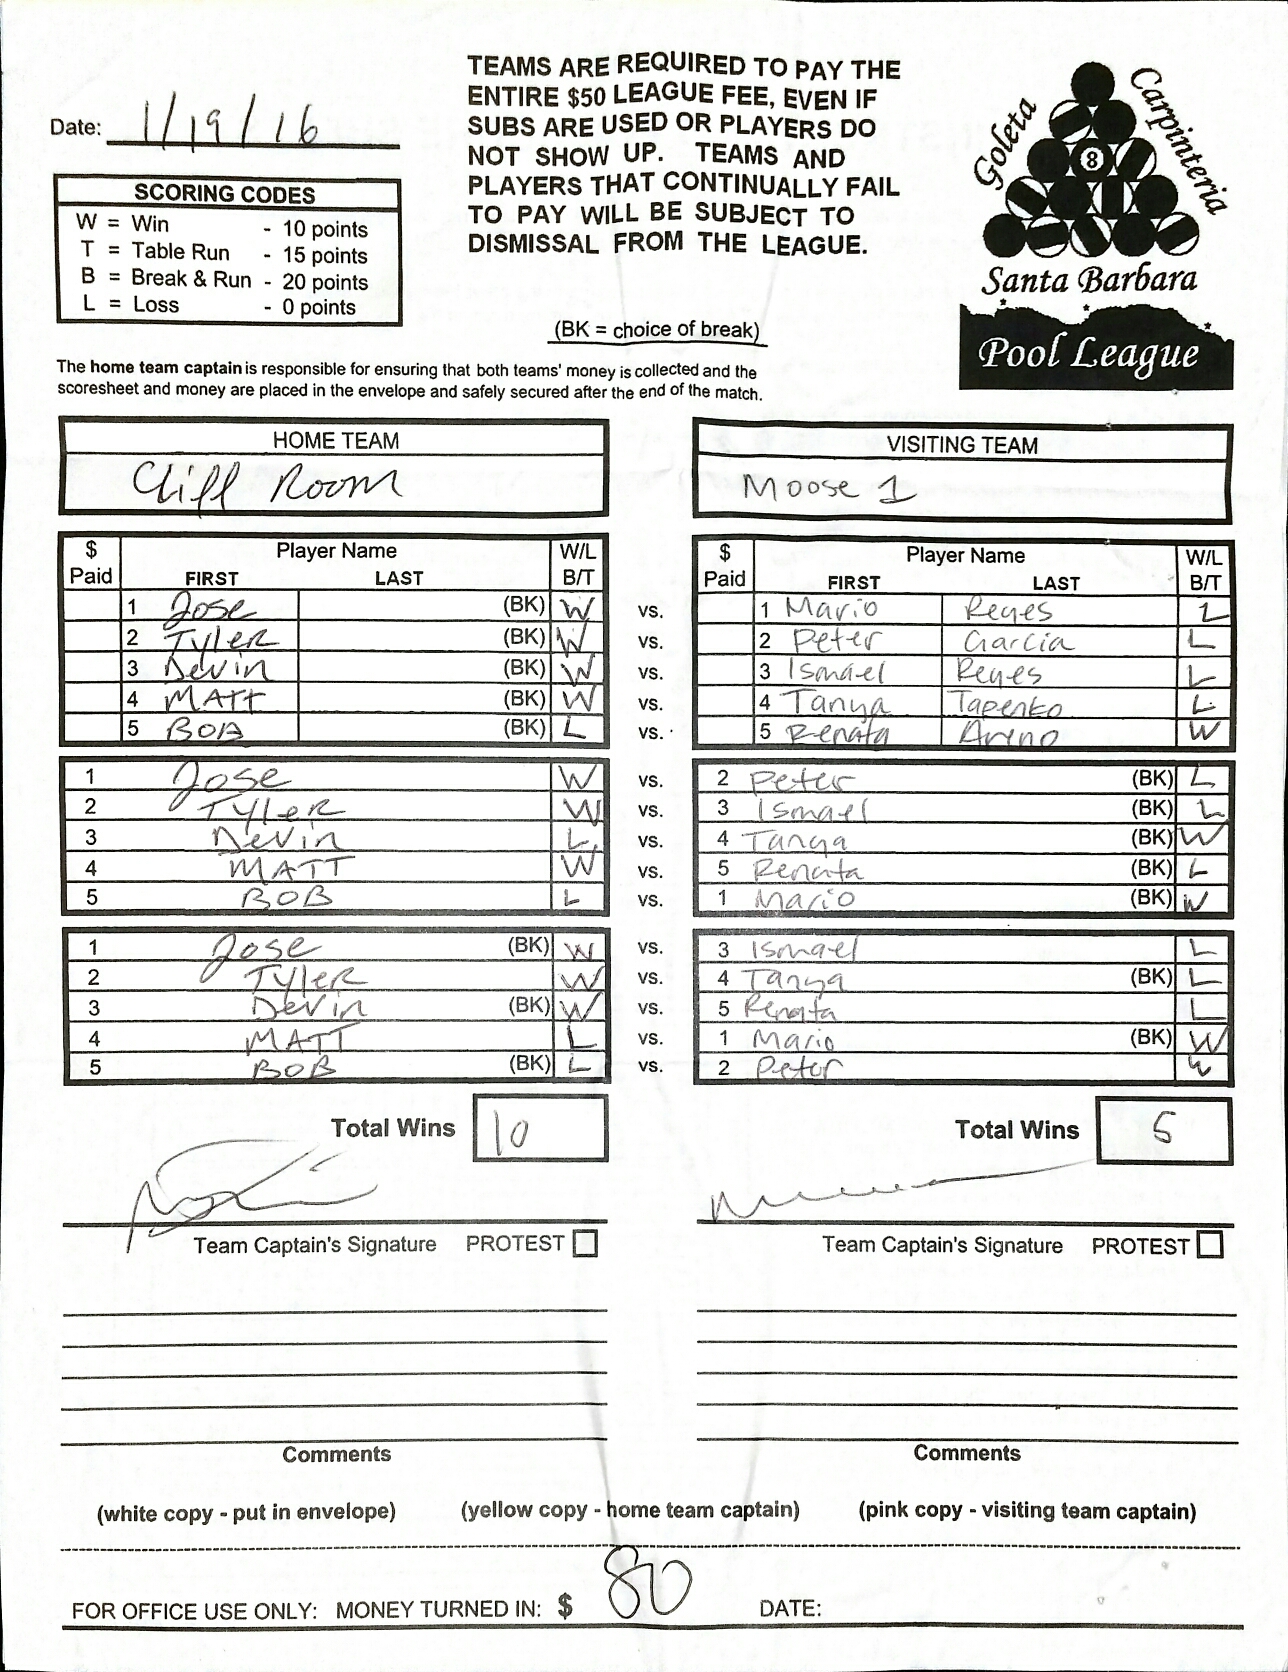 TEAMS ARE REQUIRED TO PAY THE
ENTIRE $50 LEAGUE FEE, EVEN IF
SUBS ARE USED OR PLAYERS DO
NOT SHOW UP. TEAMS AND
PLAYERS THAT CONTINUALLY FAIL
TO PAY WILL BE SUBJECT TO
DISMISSAL FROM THE LEAGUE.
Date: 1/19/16
Goleta
Carpinteria
8
Santa Barbara
Pool League
SCORING CODES
W = Win - 10 points
T = Table Run - 15 points
B = Break & Run - 20 points
L = Loss - 0 points
(BK = choice of break)
The home team captain is responsible for ensuring that both teams' money is collected and the
scoresheet and money are placed in the envelope and safely secured after the end of the match.
HOME TEAM VISITING TEAM
Cliff Room Moose 1
$ Paid Player Name FIRST LAST W/L B/T $ Paid Player Name FIRST LAST W/L B/T
1 Jose (BK) W vs. 1 Mario Reyes L
2 Tyler (BK) W vs. 2 Peter Garcia L
3 Devin (BK) W vs. 3 Ismael Reyes L
4 MATT (BK) W vs. 4 Tanya Tapenko L
5 BOB (BK) L vs. 5 Renata Areno W
1 Jose W vs. 2 Peter (BK) L
2 Tyler W vs. 3 Ismael (BK) L
3 Devin L vs. 4 Tanya (BK) W
4 MATT W vs. 5 Renata (BK) L
5 BOB L vs. 1 Mario (BK) W
1 Jose (BK) W vs. 3 Ismael L
2 Tyler W vs. 4 Tanya (BK) L
3 Devin (BK) W vs. 5 Renata L
4 MATT L vs. 1 Mario (BK) W
5 BOB (BK) L vs. 2 Peter W
Total Wins 10 Total Wins 5
Team Captain's Signature PROTEST Team Captain's Signature PROTEST
Comments Comments
(white copy - put in envelope) (yellow copy - home team captain) (pink copy - visiting team captain)
FOR OFFICE USE ONLY: MONEY TURNED IN: $ 80 DATE: